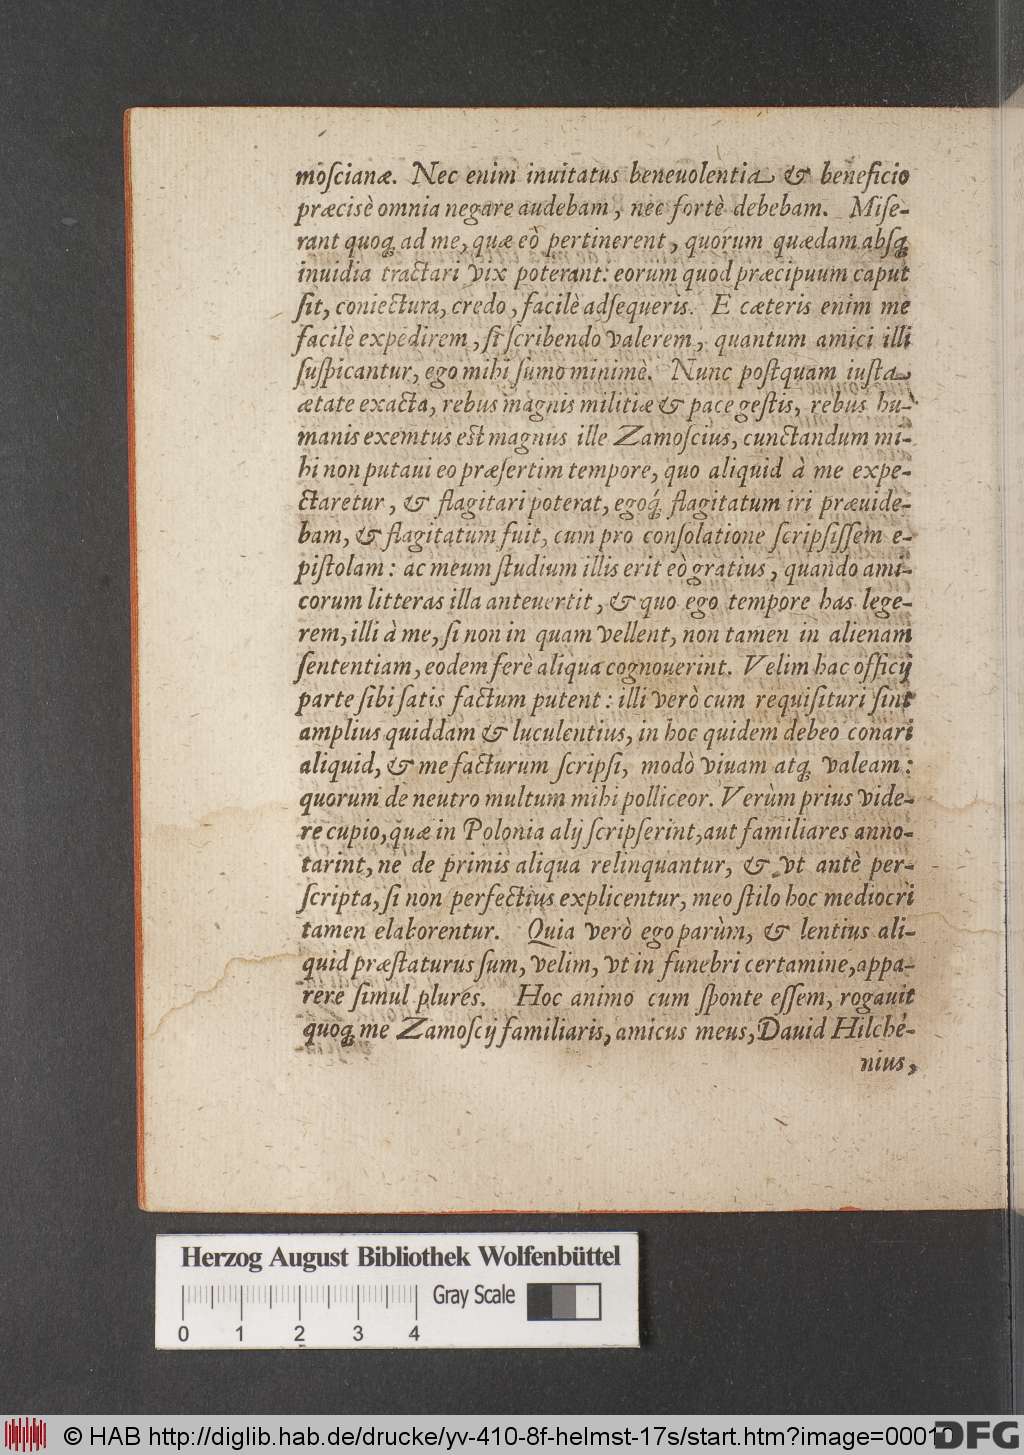 moſcianæ. Nec enim inuitatus beneuolentia & beneficio
præcisè omnia negare audebam, nec fortè debebam. Miſe-
rant quoq; ad me, quæ eò pertinerent, quorum quædam abſq;
inuidia tractari vix poterant: eorum quod præcipuum caput
ſit, coniectura, credo, facilè adſequeris. E cæteris enim me
facilè expedirem, ſi ſcribendo valerem, quantum amici illi
ſuſpicantur, ego mihi ſumo minimè. Nunc poſtquam iuſta
ætate exacta, rebus magnis militiæ & pace geſtis, rebus hu-
manis exemtus est magnus ille Zamoſcius, cunctandum mi-
hi non putaui eo præſertim tempore, quo aliquid à me expe-
ctaretur, & flagitari poterat, egoq́; flagitatum iri præuide-
bam, & flagitatum fuit, cum pro conſolatione ſcripſiſſem e-
piſtolam: ac meum ſtudium illis erit eò gratius, quando ami-
corum litteras illa anteuertit, & quo ego tempore has lege-
rem, illi à me, ſi non in quam vellent, non tamen in alienam
ſententiam, eodem ferè aliqua cognouerint. Velim hac officij
parte ſibi ſatis factum putent: illi verò cum requiſituri ſint
amplius quiddam & luculentius, in hoc quidem debeo conari
aliquid, & me facturum ſcripſi, modò viuam atq; valeam:
quorum de neutro multum mihi polliceor. Verùm prius vide-
re cupio, quæ in Polonia alij ſcripſerint, aut familiares anno-
tarint, ne de primis aliqua relinquantur, & vt antè per-
ſcripta, ſi non perfectius explicentur, meo ſtilo hoc mediocri
tamen elaborentur. Quia verò ego parùm, & lentius ali-
quid præſtaturus ſum, velim, vt in funebri certamine, appa-
rere ſimul plures. Hoc animo cum ſponte eſſem, rogauit
quoq; me Zamoſcij familiaris, amicus meus, Dauid Hilche-
nius,
Herzog August Bibliothek Wolfenbüttel
Gray Scale
0 1 2 3 4
© HAB http://diglib.hab.de/drucke/yv-410-8f-helmst-17s/start.htm?image=00010
DFG